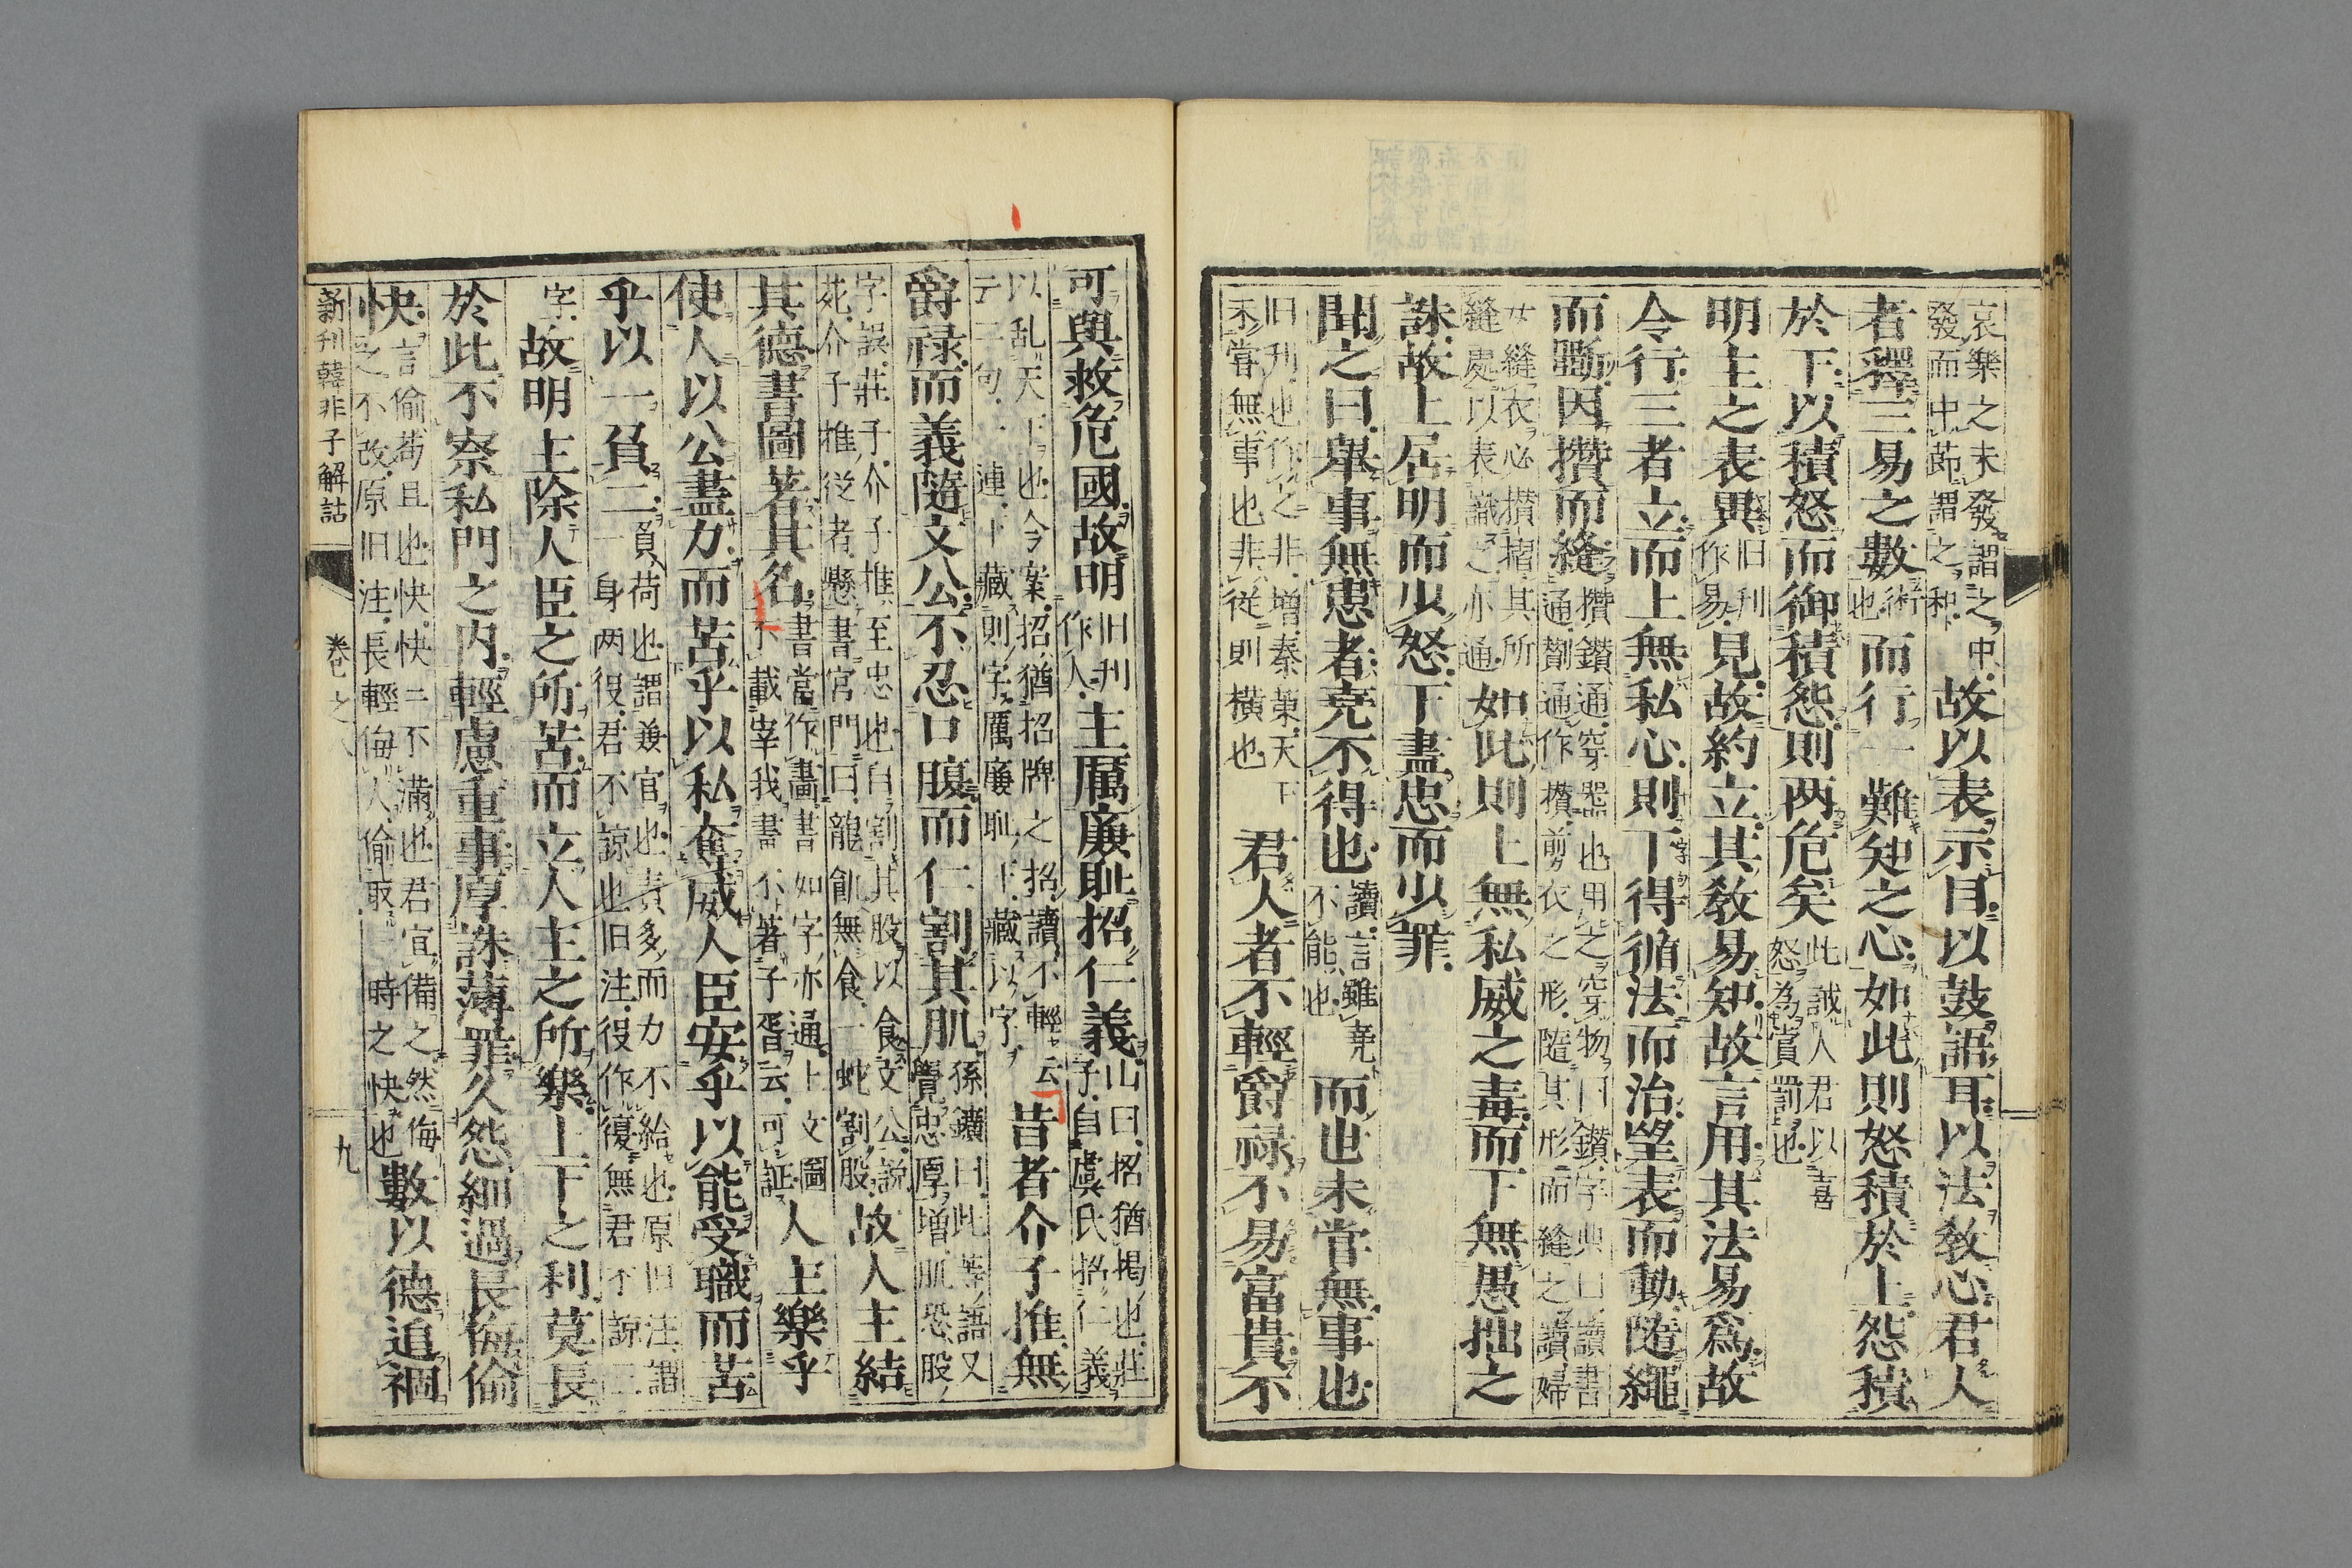 哀樂之未發謂之中
發而中節謂之和
故以表示目以鼓語耳以法教心君人
者釋三易之數
術也
而行一難知之心如此則怒積於上怨積
於下以積怒而御積怨則两危矣
此誡人君以喜
怒為賞罰也
明主之表異
旧刋
作易
見故約立其教易知故言用其法易爲故
令行三者立而上無私心則下得循法而治望表而動隨繩
而斵因攢而縫
攢鑽通穿器也用之穿物曰鑽字典曰讀書
通劗通作攅前衣之形隨其形而縫之讀婦
女縫衣必攅摺其所
縫處以表識之亦通
如此則上無私威之毒而下無愚拙之
誅故上居明而少怒下盡忠而少罪
聞之曰舉事無患者尭不得也
讀言雖尭
不能也
而世未甞無事也
旧刋也作之非増秦藁天下
未嘗無事也非從則横也
君人者不輕爵禄不易富貴不
可與救危國故明
旧刋
作人
主厲廉耻招仁義
山曰招猶掲也莊
子自虞氏招仁義
以乱天下也今案招猶招牌之招讀不輕云
云二句一連下藏則字厲廉耻下藏以字
昔者介子推無
爵禄而義隨文公不忍口腹而仁割其肌
孫鑛曰此等語又
覺忠厚増肌恐股
字誤莊子介子推至忠也自割其股以食文公説
苑介子推從者懸書宮門曰龍飢無食一蛇割股
故人主結
其德書圖著其名
書當作畵書如字亦通上文圖
不載宰我畵不著子胥云可証
人主樂乎
使人以公盡力而苦乎以私奪威人臣安乎以能受職而苦
乎以一負二
負荷也謂兼官也責多而力不給也原旧注謂
一身两役君不諒也旧注役作復無君不諒二
字
故明主除人臣之所苦而立人主之所樂上下之利莫長
於此不察私門之内輕慮重事厚誅薄罪久怨細過長侮偷
快
言偷苟且也快快二不滿也君宜備之然侮
之不改原旧注長輕侮人偷取一時之快也
數以德追禍
新刋韓非子解詁
巻之八
九